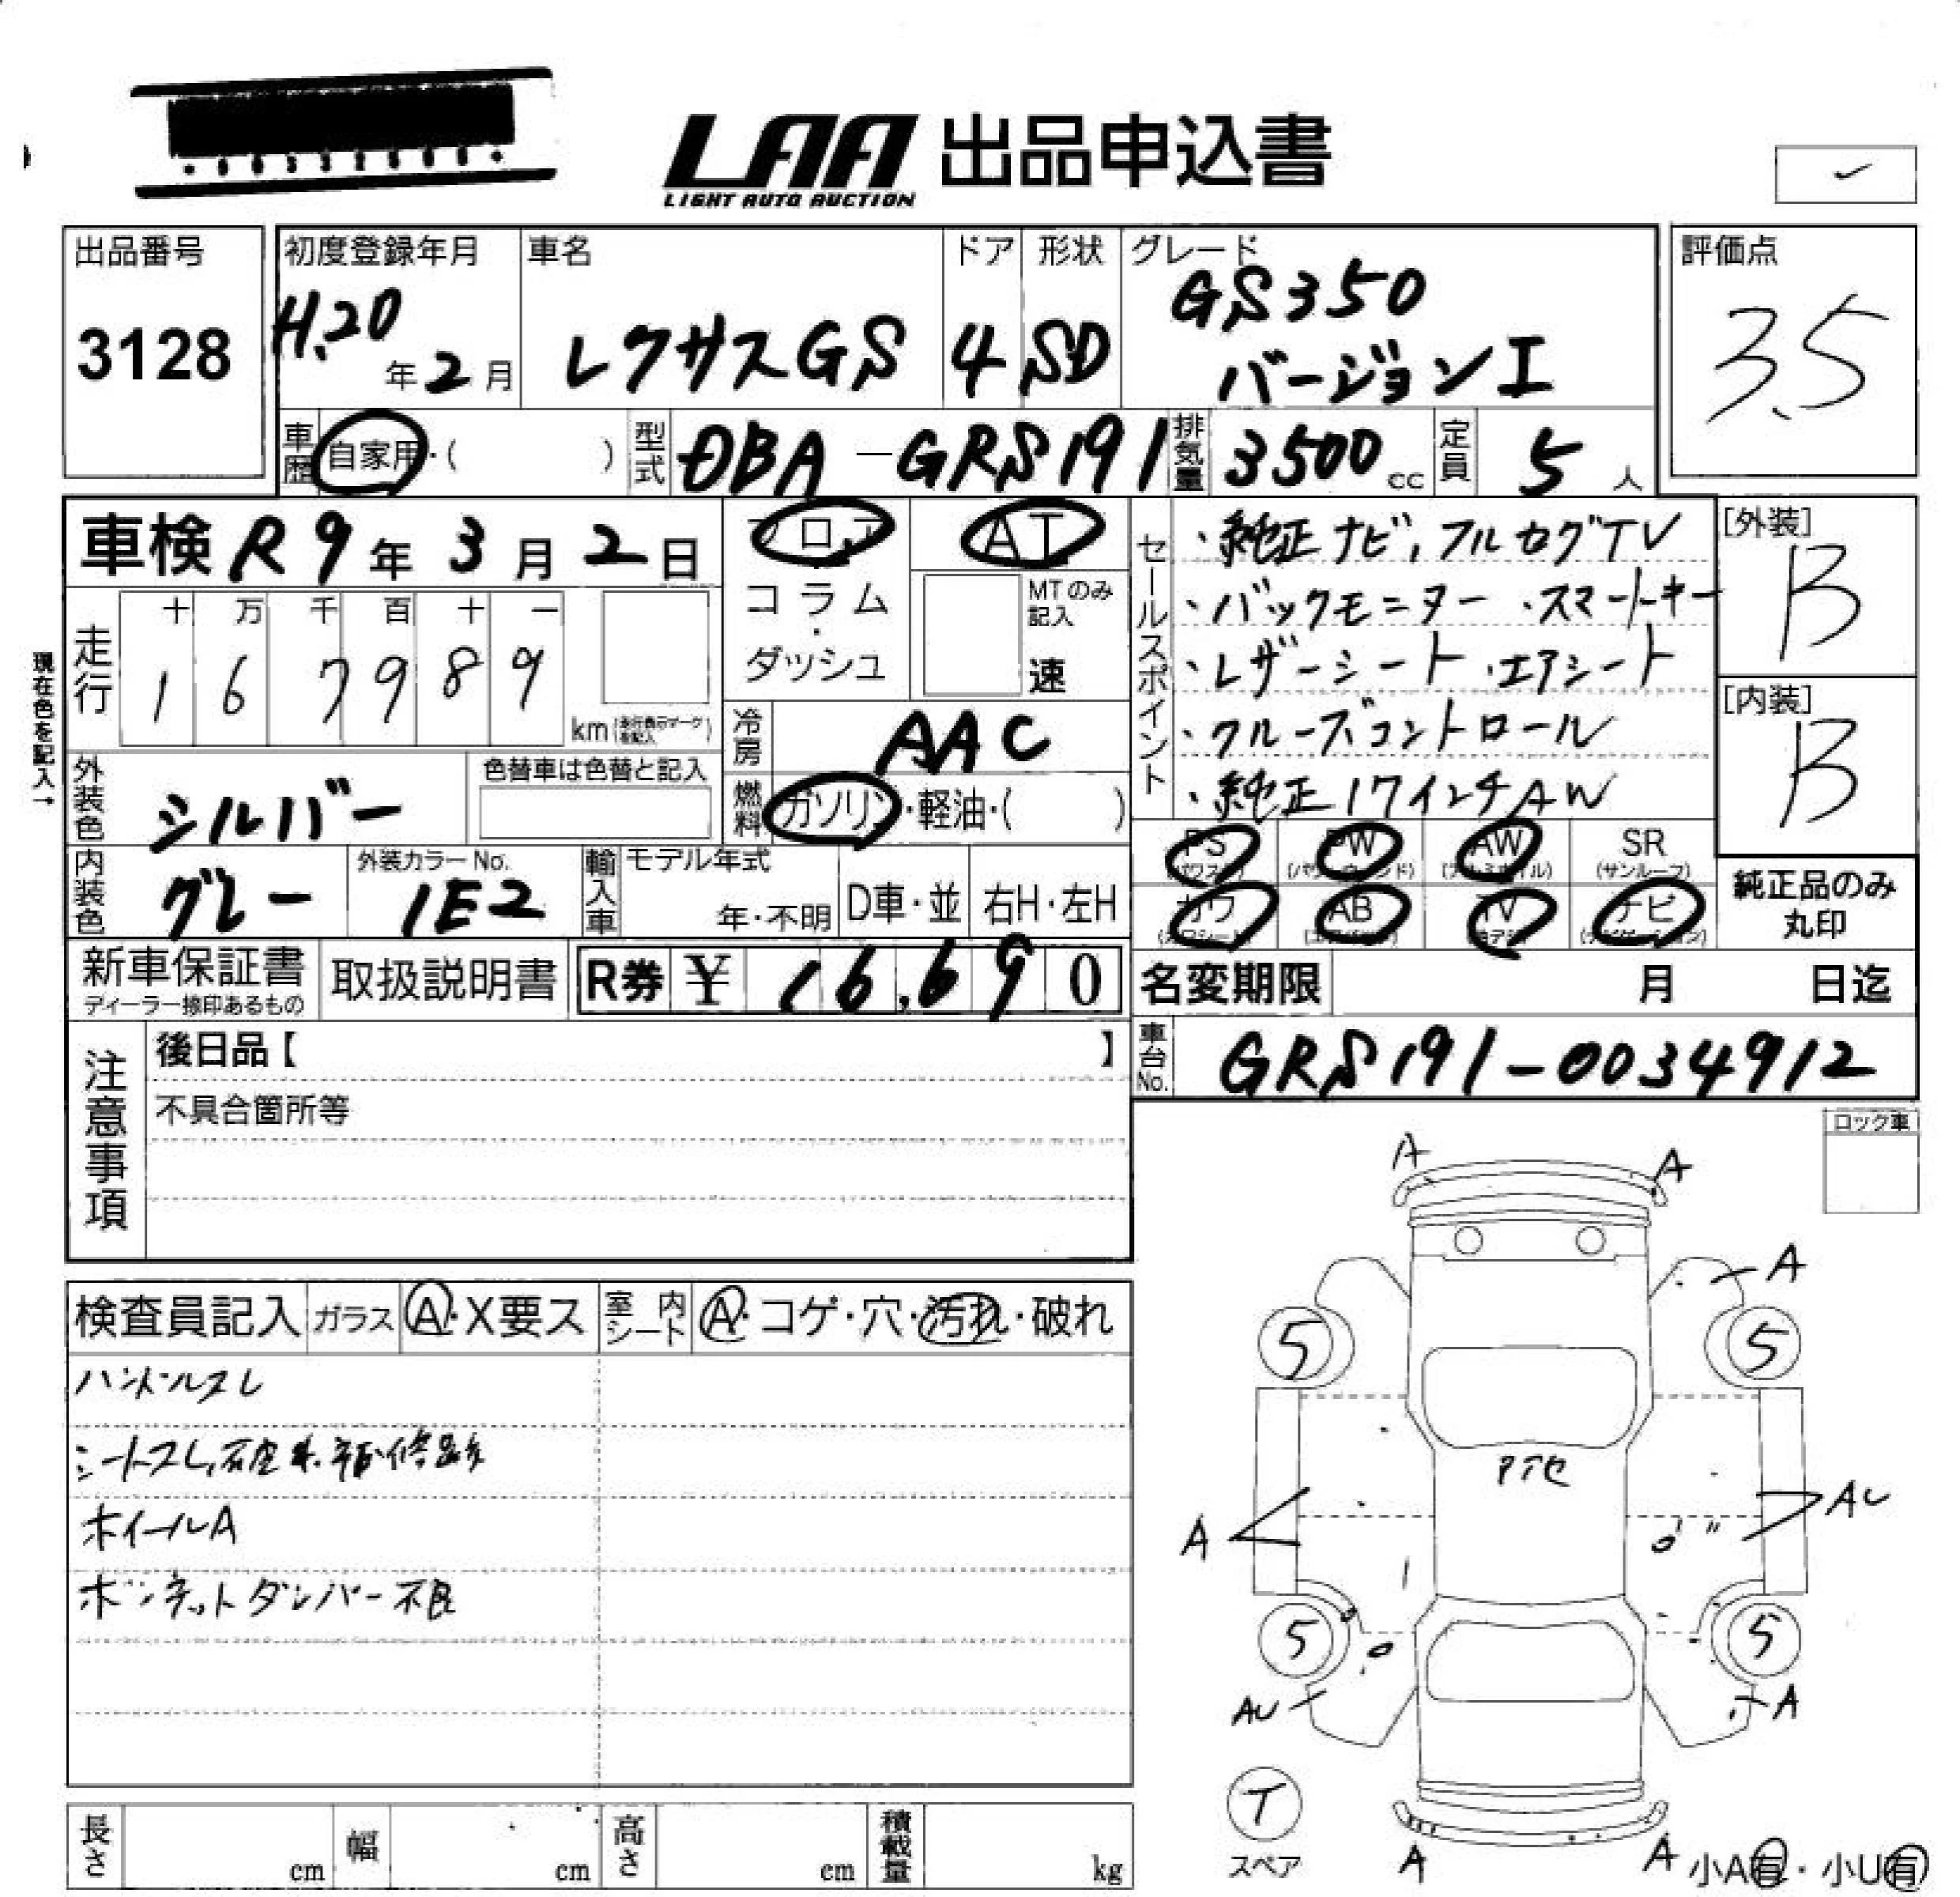 LAA 出品申込書
LIGHT AUTO AUCTION
出品番号
3128
初度登録年月
H.20年2月
車名
レクサスGS
ドア
4
形状
SD
グレード
GS350
バージョンI
評価点
3.5
車歴 自家用・( )
型式 DBA-GRS191
排気量 3500cc
定員 5人
車検 R9年3月2日
フロア
コラム
・
ダッシュ
AT
MTのみ記入
速
現在色を記入→
走行
十 万 千 百 十 一
1 6 7 9 8 9
km (走行表示マークを記入)
冷房 AAC
燃料 ガソリン・軽油・( )
外装色 シルバー
色替車は色替と記入
内装色 グレー
外装カラーNo.
1E2
輸入車
モデル年式
年・不明
D車・並
右H・左H
セールスポイント
・純正ナビ,フルセグTV
・バックモニター ・スマートキー
・レザーシート ・エアシート
・クルーズコントロール
・純正17インチAW
[外装]
B
[内装]
B
PS (パワステ)
PW (パワーウインド)
AW (アルミホイル)
SR (サンルーフ)
カワ (カワシート)
AB (エアバッグ)
TV
ナビ (ナビゲーション)
純正品のみ
丸印
新車保証書
ディーラー捺印あるもの
取扱説明書
R券 ¥ 16,690
名変期限 月 日迄
車台No. GRS191-0034912
注意事項
後日品【 】
不具合箇所等
ロック車
検査員記入
ガラス A・X要ス
室内シート A・コゲ・穴・汚れ・破れ
ハンドルスレ
シートスレ,破れ補修跡
ホイールA
ボンネットダンパー不良
A
A
A
5
5
アテセ
A
AU
5
5
AU
A
T
スペア
A
A
小A有・小U有
長さ cm
幅 cm
高さ cm
積載量 kg